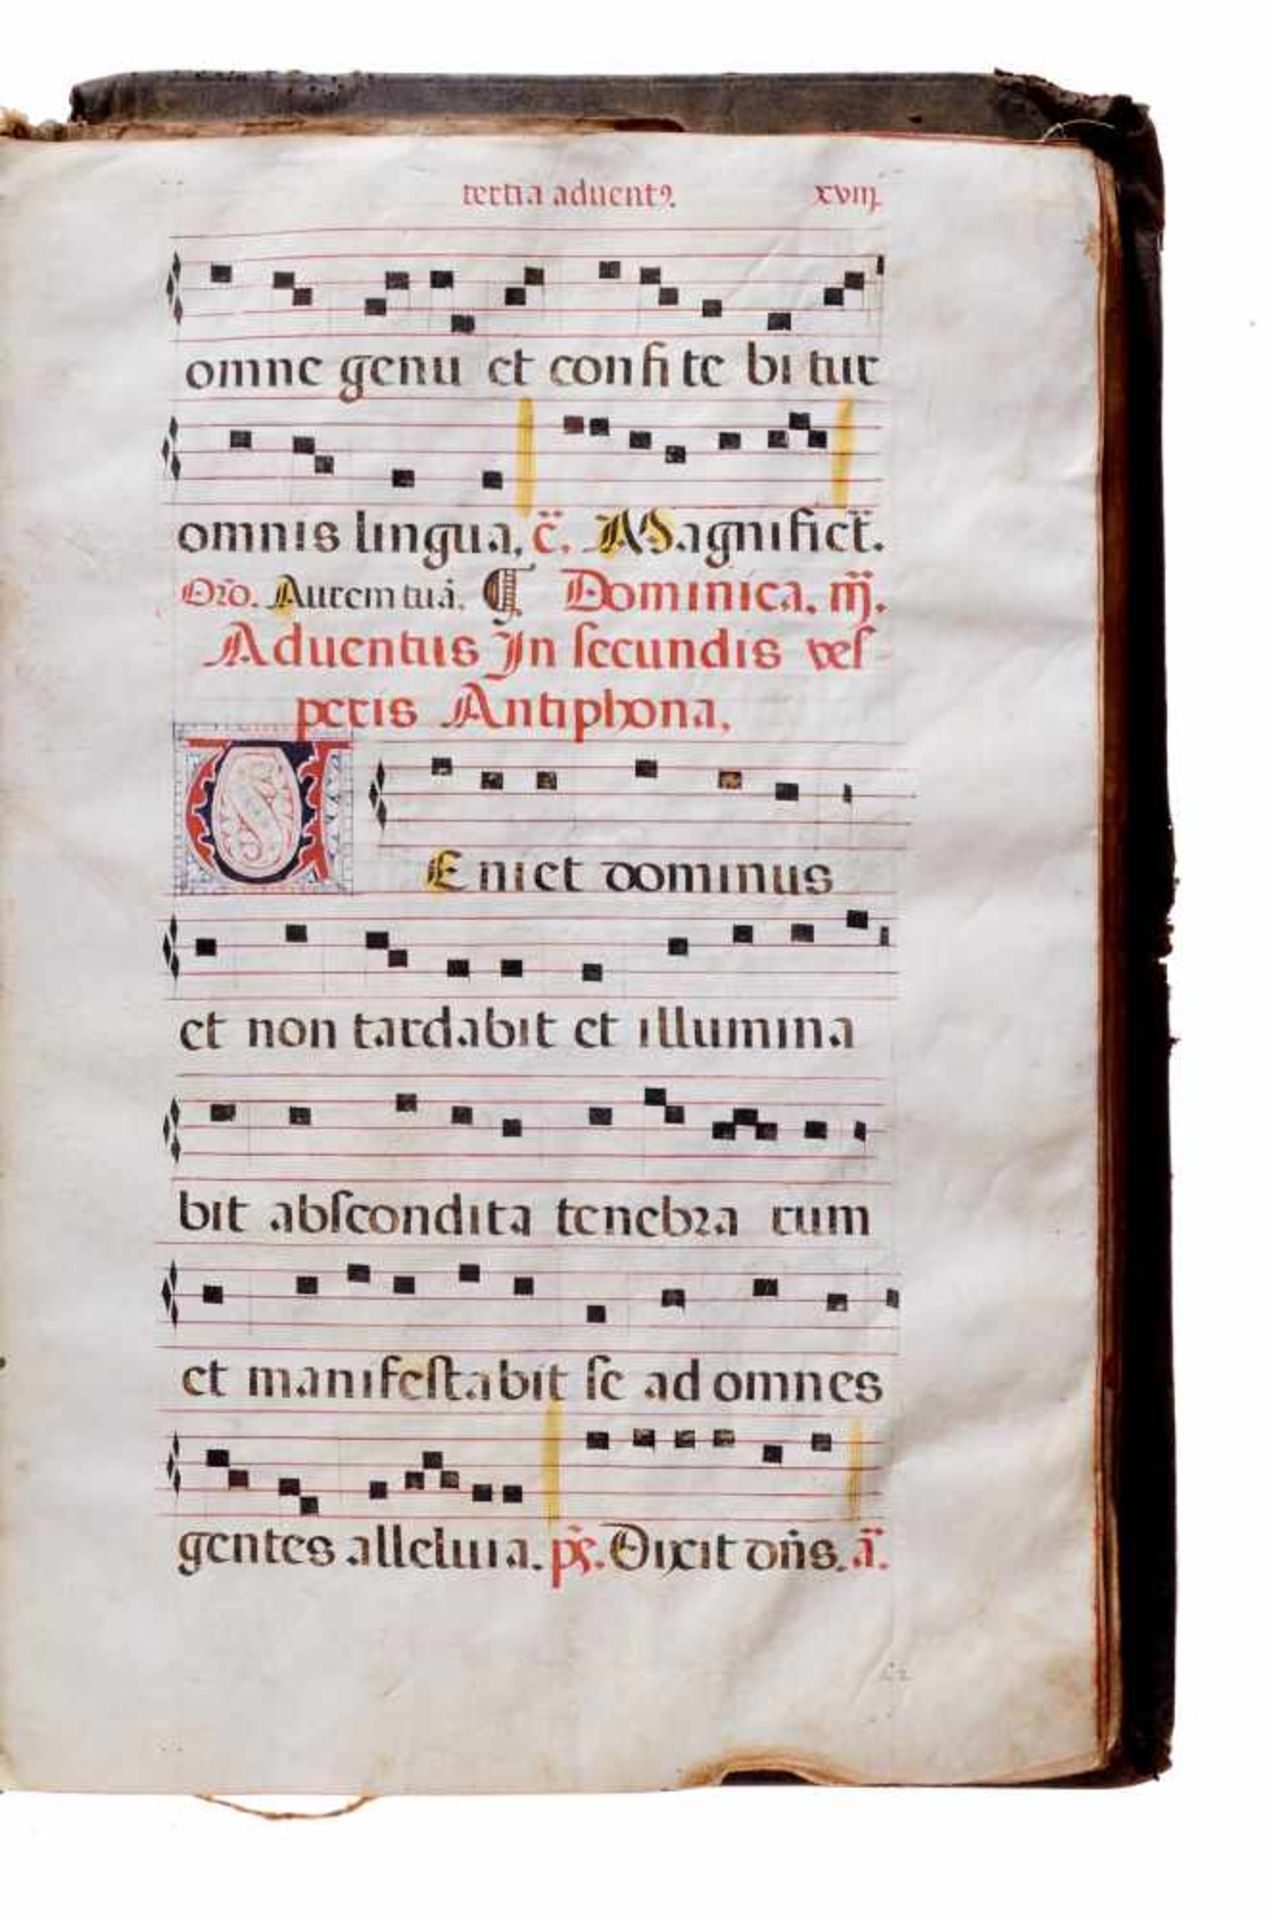 tertia aduentꝰ. xviij.
omne genu et confi te bi tur
omnis lingua. c̃. Magnifict̃.
Oro᷑. Aurem tuã. ¶ Dominica. iij.
Aduentus Jn ſecundis veſ
peris Antiphona.
VEniet dominus
et non tardabit et illumina
bit abſcondita tenebꝛa rum
et manifeſtabit ſe ad omnes
gentes alleluia. ps̃. Dixit dñs. ã.